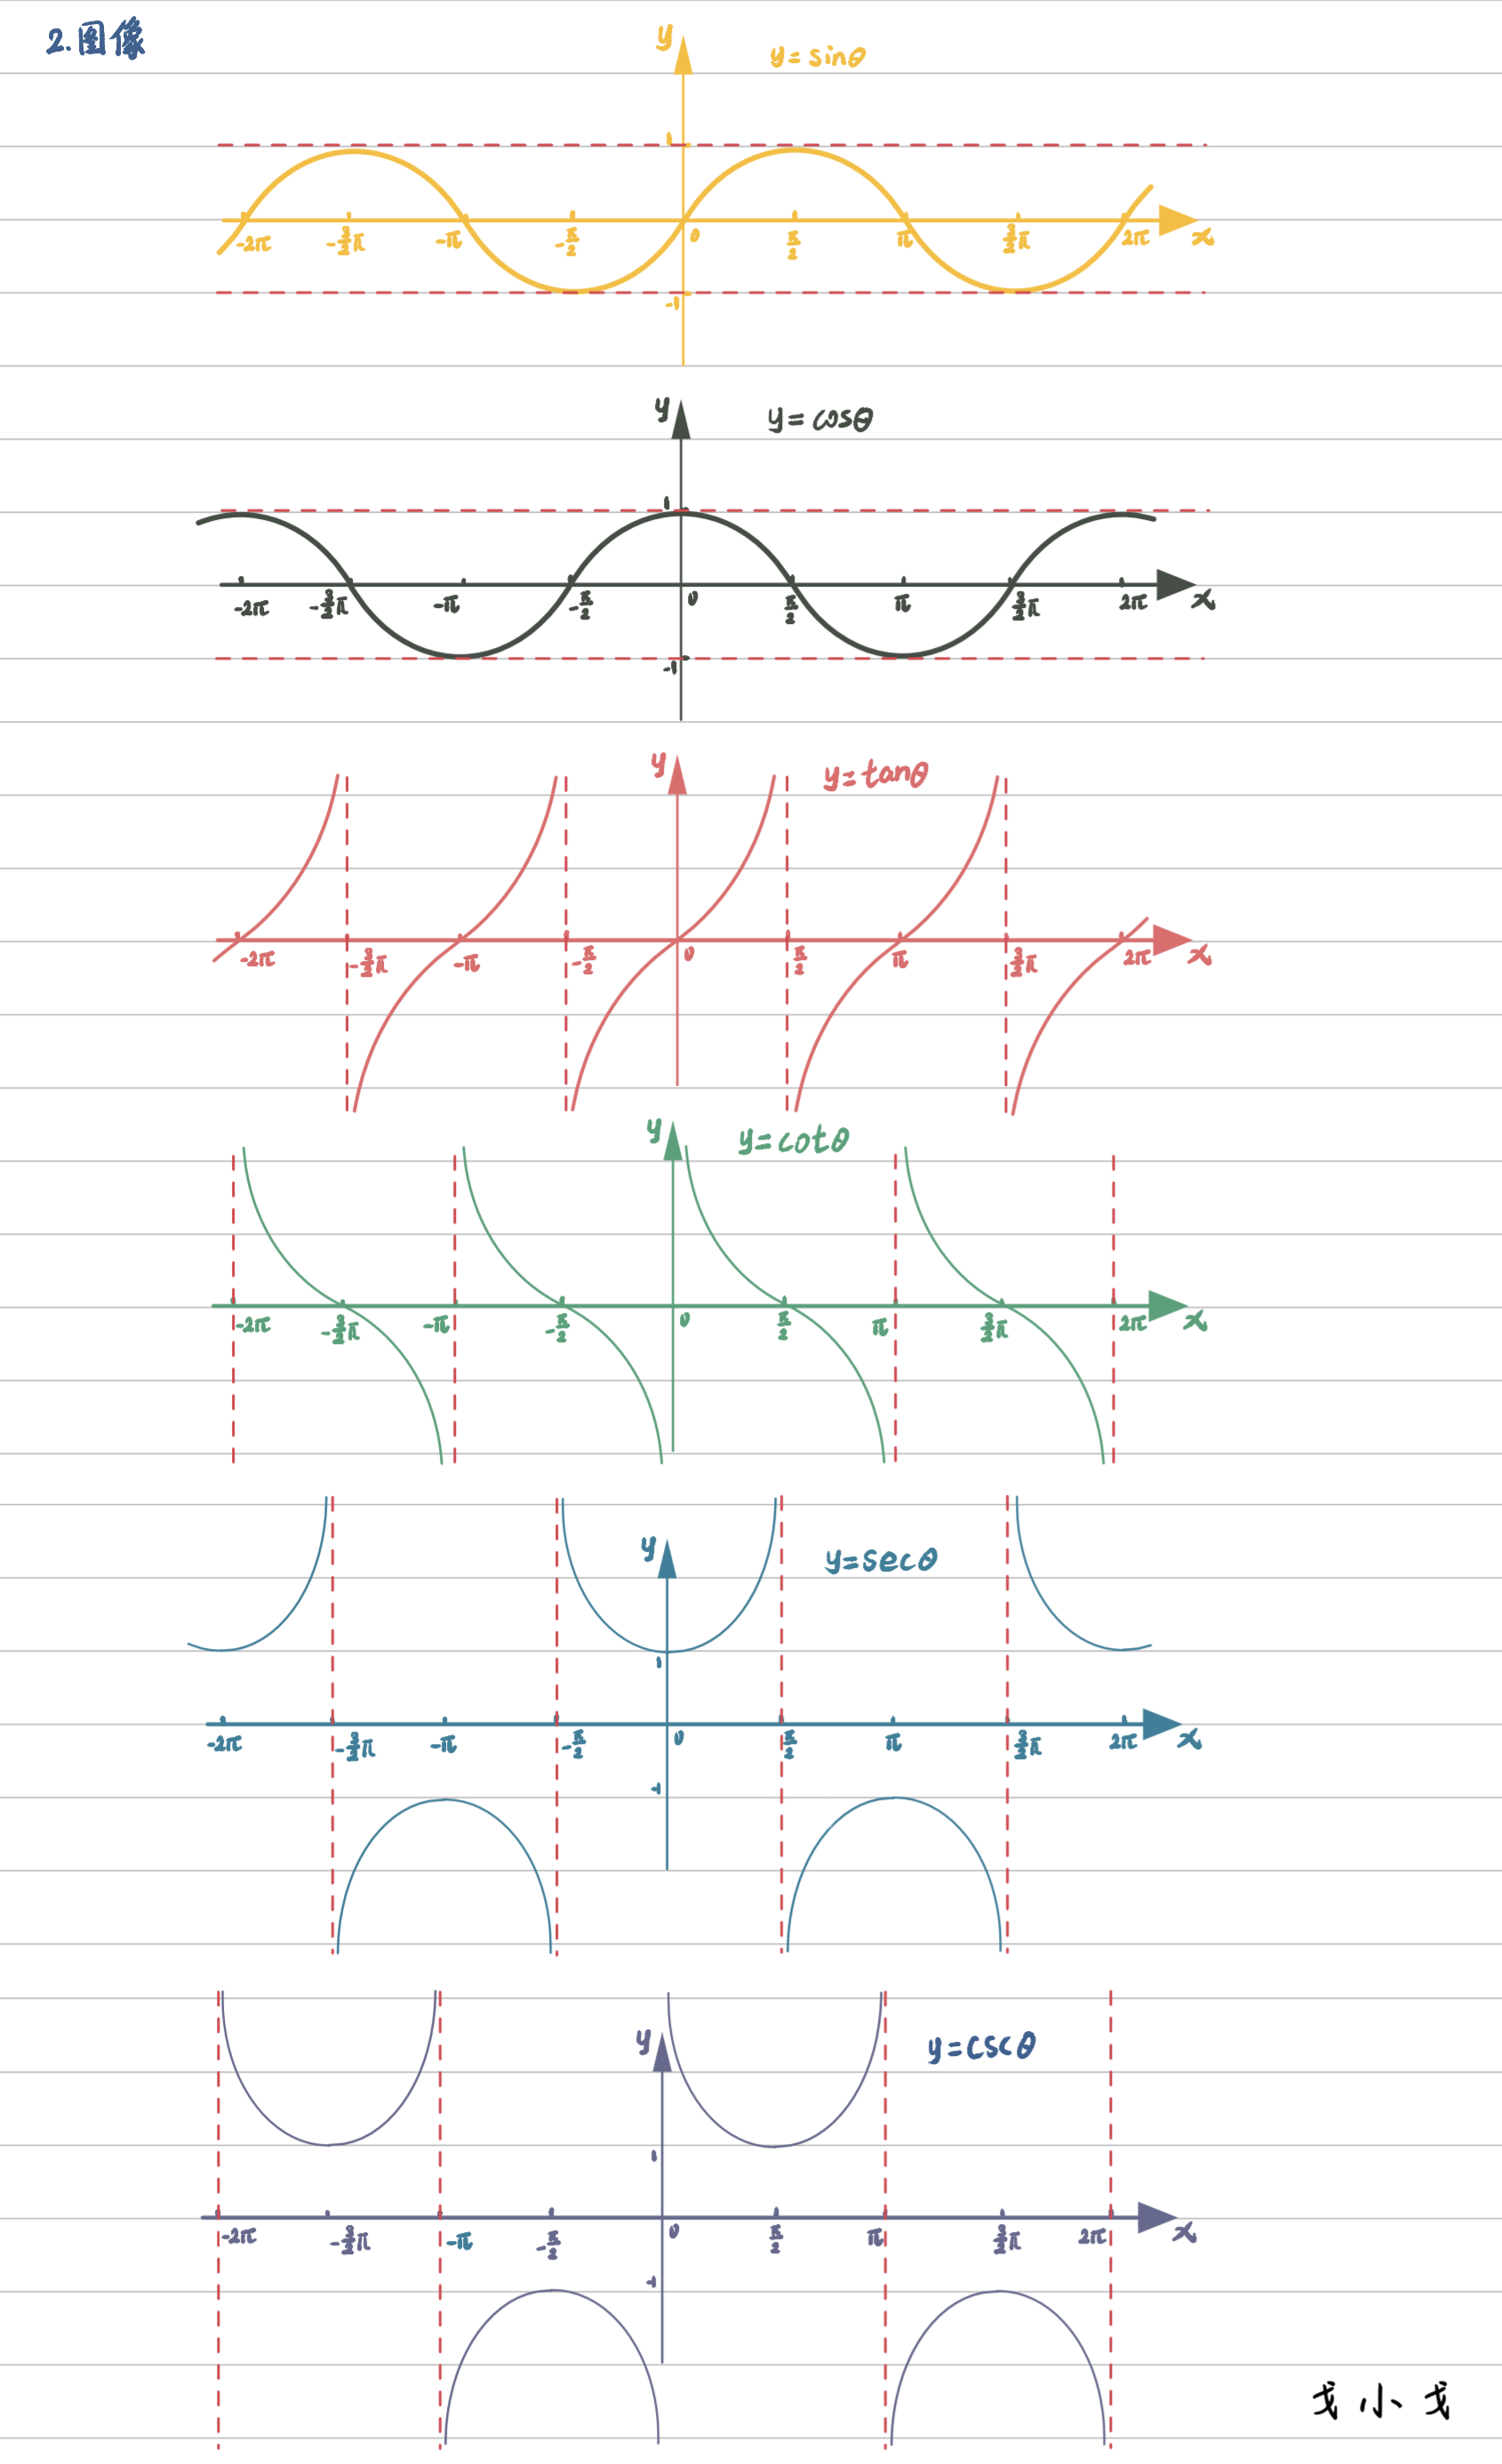 2.图像
y
y=sinθ
1
-2π -3/2π -π -π/2 0 π/2 π 3/2π 2π x
-1
y
y=cosθ
1
-2π -3/2π -π -π/2 0 π/2 π 3/2π 2π x
-1
y
y=tanθ
-2π -3/2π -π -π/2 0 π/2 π 3/2π 2π x
y
y=cotθ
-2π -3/2π -π -π/2 0 π/2 π 3/2π 2π x
y
y=secθ
1
-2π -3/2π -π -π/2 0 π/2 π 3/2π 2π x
-1
y
y=cscθ
1
-2π -3/2π -π -π/2 0 π/2 π 3/2π 2π x
-1
戈小戈